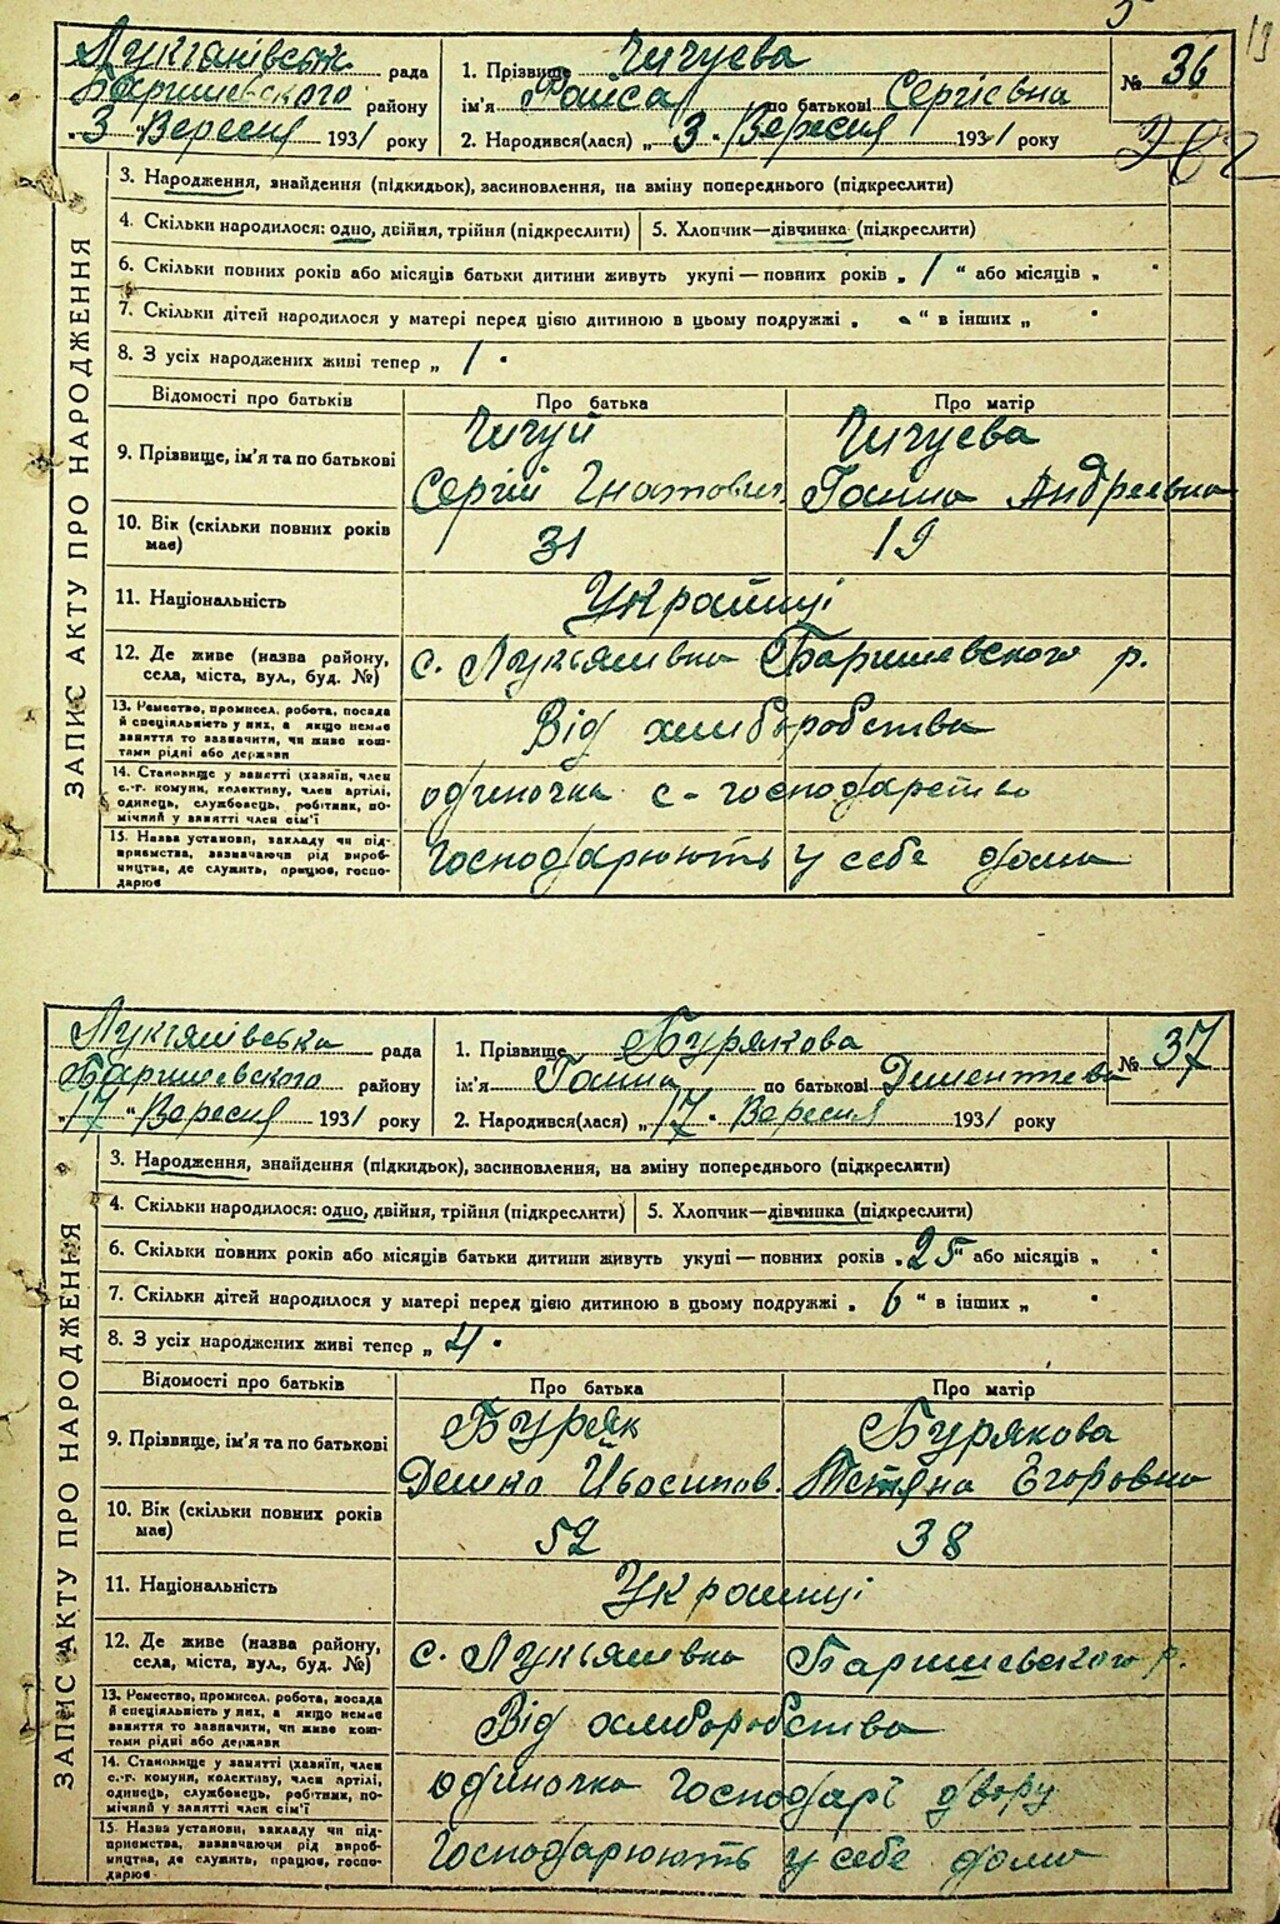 5
19
Лукʼянівськ. рада
Баришевского району
„3 " Вересня 1931 року
1. Прізвище Чичуева
ім'я Раиса по батькові Сергієвна
2. Народився(лася) „ 3 " Вересня 1931 року
№ 36
ЗАПИС АКТУ ПРО НАРОДЖЕННЯ
3. Народження, знайдення (підкидьок), засиновлення, на зміну попереднього (підкреслити)
4. Скільки народилося: одно, двійня, трійня (підкреслити) 5. Хлопчик—дівчинка (підкреслити)
6. Скільки повних років або місяців батьки дитини живуть укупі — повних років „ 1 " або місяців „ "
7. Скільки дітей народилося у матері перед цією дитиною в цьому подружжі „ - " в інших „ "
8. З усіх народжених живі тепер „ 1 "
Відомості про батьків Про батька Про матір
9. Прізвище, ім'я та по батькові
Чичуй Чичуева
Сергій Гнатович Ганна Андреевна
10. Вік (скільки повних років має)
31 19
11. Національність Українці
12. Де живе (назва району, села, міста, вул., буд. №)
с. Лукьянівка Баришевського р.
13. Ремество, промисел, робота, посада й спеціяльність у них, а якщо немає заняття то зазначити, чи живе коштами рідні або держави
Від хлиборобства
14. Становище у занятті (хазяїн, член с.-г. комуни, колективу, член артілі, одинець, службовець, робітник, помічний у занятті член сім'ї
одиночка с-господарство
15. Назва установи, закладу чи підприємства, зазначаючи рід виробництва, де служить, працює, господарює
Господарюють у себе дома
Лукʼянівська рада
Баришевського району
„17 " Вересня 1931 року
1. Прізвище Бурякова
ім'я Ганна по батькові Дементева
2. Народився(лася) „ 17 " Вересня 1931 року
№ 37
ЗАПИС АКТУ ПРО НАРОДЖЕННЯ
3. Народження, знайдення (підкидьок), засиновлення, на зміну попереднього (підкреслити)
4. Скільки народилося: одно, двійня, трійня (підкреслити) 5. Хлопчик—дівчинка (підкреслити)
6. Скільки повних років або місяців батьки дитини живуть укупі — повних років „ 25 " або місяців „ "
7. Скільки дітей народилося у матері перед цією дитиною в цьому подружжі „ 6 " в інших „ "
8. З усіх народжених живі тепер „ 4 "
Відомості про батьків Про батька Про матір
9. Прізвище, ім'я та по батькові
Буряк Бурякова
Демко Йвосипов. Тетяна Егоровна
10. Вік (скільки повних років має)
52 38
11. Національність Українці
12. Де живе (назва району, села, міста, вул., буд. №)
с. Лукьянівка Баришевського р.
13. Ремество, промисел, робота, посада й спеціяльність у них, а якщо немає заняття то зазначити, чи живе коштами рідні або держави
Від хлиборобства
14. Становище у занятті (хазяїн, член с.-г. комуни, колективу, член артілі, одинець, службовець, робітник, помічний у занятті член сім'ї
одиночка господарі двору
15. Назва установи, закладу чи підприємства, зазначаючи рід виробництва, де служить, працює, господарює
Господарюють у себе дома